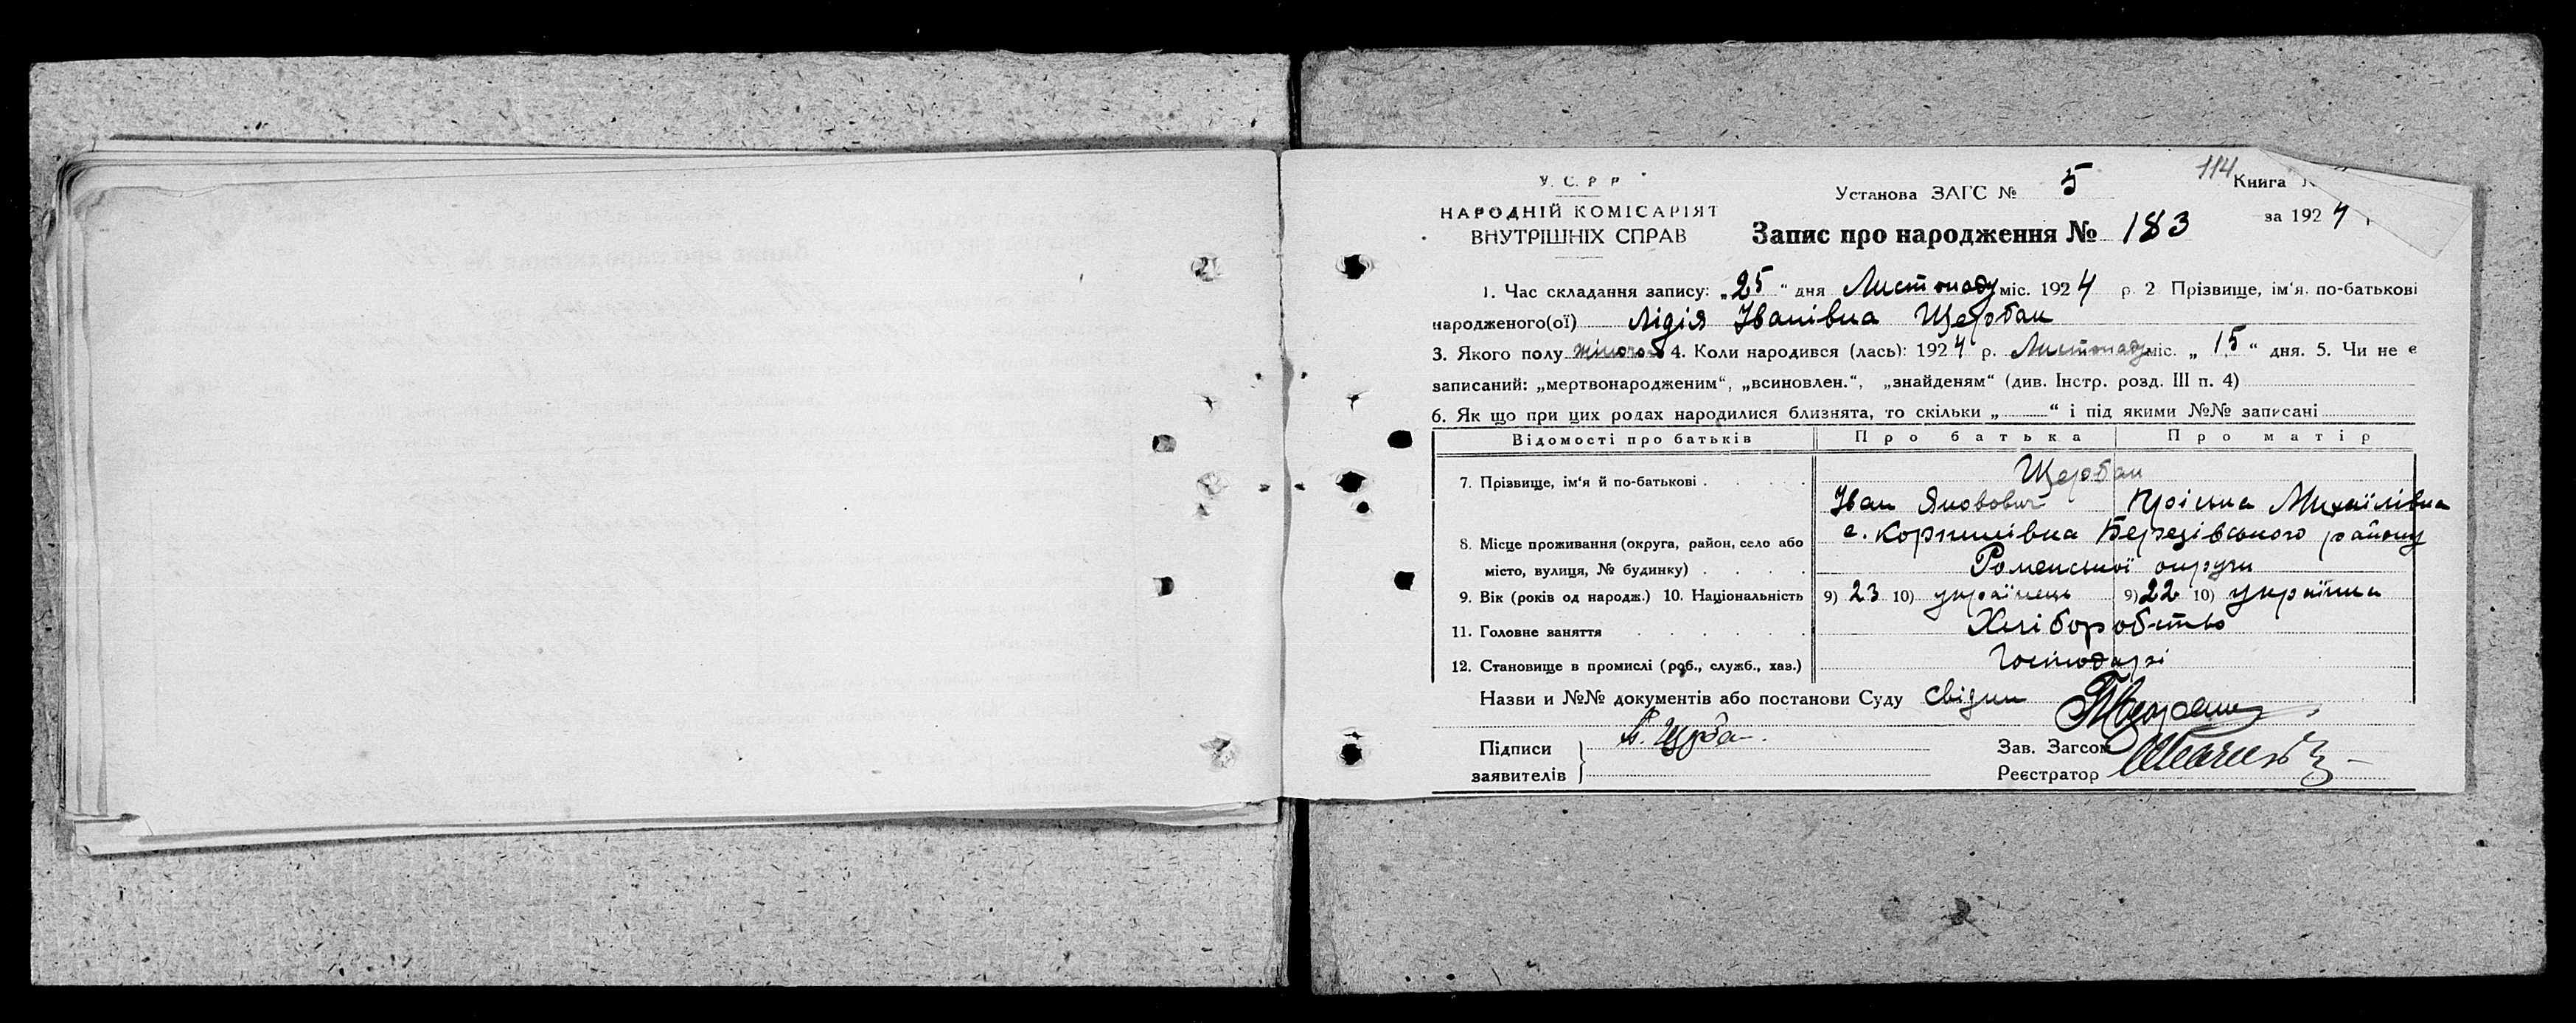 У. С. Р. Р.
НАРОДНІЙ КОМІСАРІЯТ
ВНУТРІШНІХ СПРАВ
Установа ЗАГС № 5
114
Книга
за 1924
Запис про народження № 183
1. Час складання запису: „25“ дня Листопаду міс. 1924 р. 2 Прізвище, ім'я, по-батькові
народженого(ої) Лідія Іванівна Щербак
3. Якого полу жіночого 4. Коли народився (лась): 1924 р. Листопаду міс. „15“ дня. 5. Чи не є
записаний: „мертвонародженим“, „всиновлен.“, „знайденям“ (див. Інстр. розд. III п. 4)
6. Як що при цих родах народилися близнята, то скільки „—“ і під якими №№ записані
Відомості про батьків Про батька Про матір
7. Прізвище, ім'я й по-батькові Щербак
Іван Якович Пріська Михаїлівна
8. Місце проживання (округа, район, село або с. Коржилівка Березівського району
місто, вулиця, № будинку) Роменської округи
9. Вік (років од народж.) 10. Національність 9) 23 10) українець 9) 22 10) українка
11. Головне заняття Хліборобство
12. Становище в промислі (роб., служб., хаз.) Господарі
Назви и №№ документів або постанови Суду свідки
Підписи
заявителів
Зав. Загсом
Реєстратор